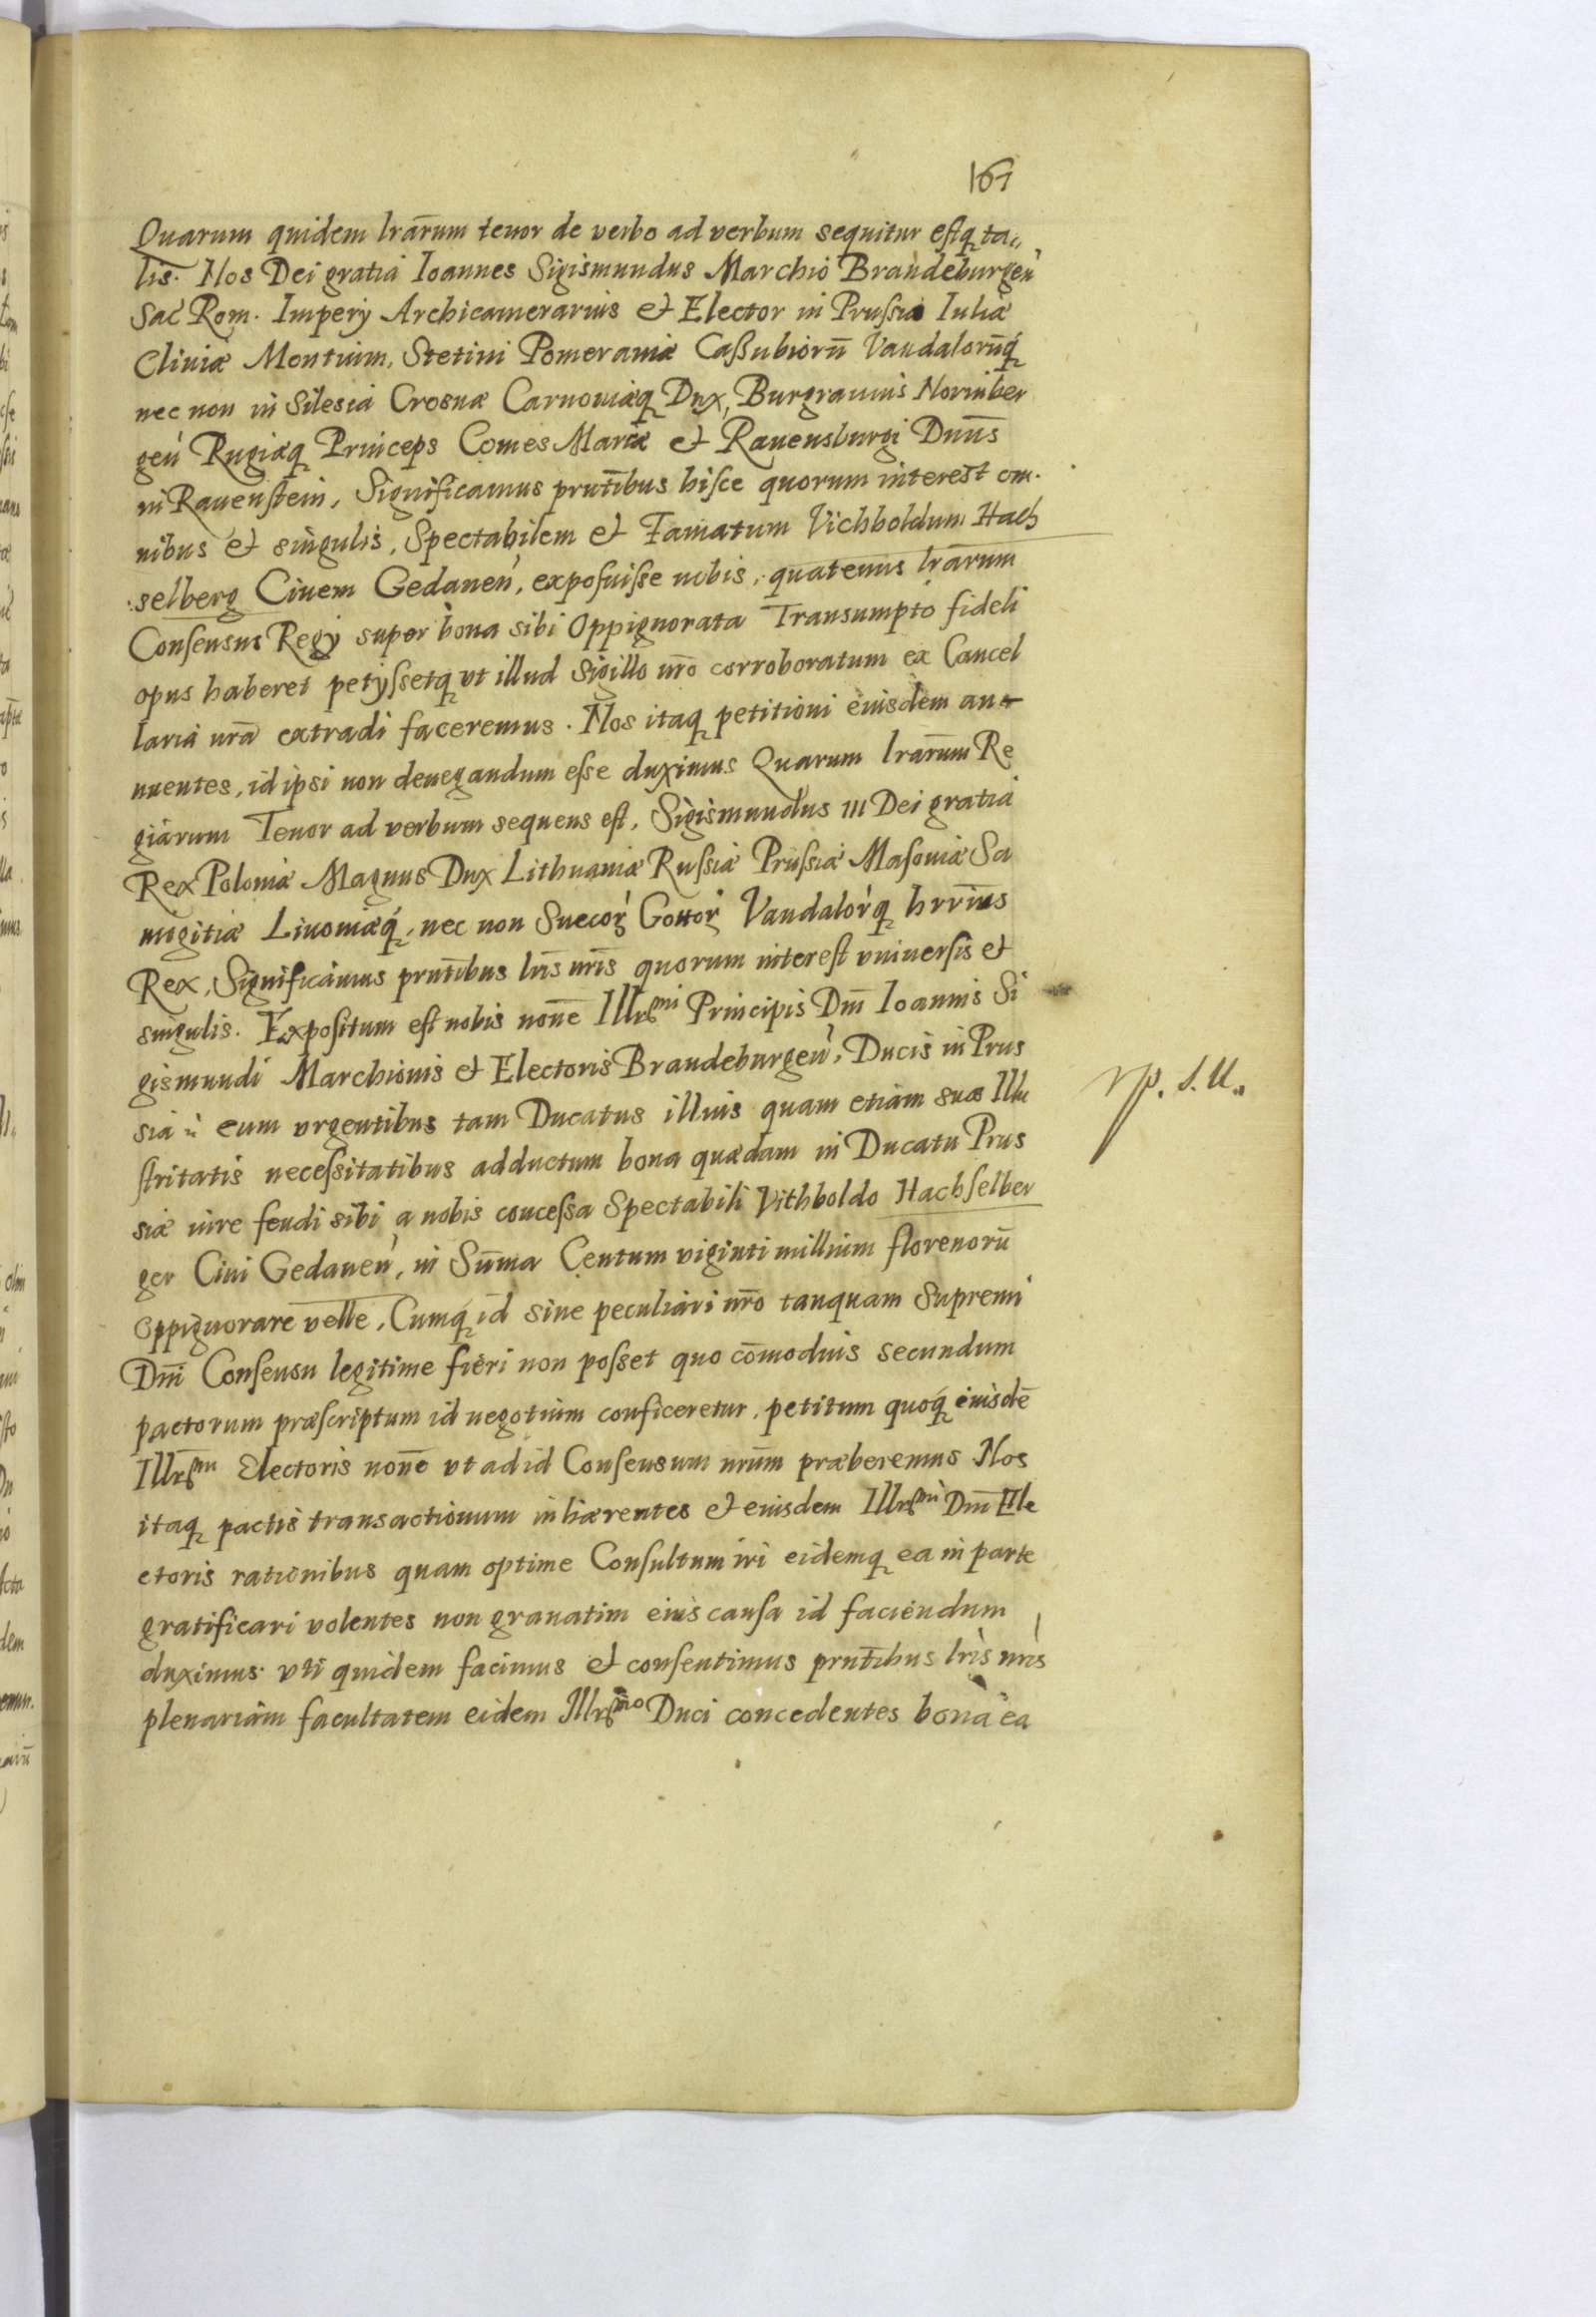 161
Quarum quidem lrārum tenor de verbo ad verbum sequitur estq ta„
lis. Nos Dei gratia Ioannes Sigismundus Marchio Brandeburgen̄
Sac Rom. Imperÿ Archicamerarius et Elector in Prussia Iuliæ
Cliuiæ Montium, Stetini Pomeraniæ Caßubiorū Vandalorūq
nec non in Silesia Crosnæ Carnouiæq Dux, Burgrauius Norinber
gen̄ Rugiæq Princeps Comes Marcæ et Rauensburgi Dnūs
in Rauenstein, Significamus prntībus hisce quorum interest om-
nibus et singulis, Spectabilem et Famatum Vichboldum Hach
selberg Ciuem Gedanen̄, exposuisse nobis, quatenus lrārum
Consensus Regÿ super bona sibi Oppignorata Transumpto fideli
opus haberet petÿssetq vt illud Sigillo nr̄o corroboratum ex Cancel
laria nrā extradi faceremus. Nos itaq petitioni eiusdem an-
nuentes, id ipsi non denegandum esse duximus Quarum lrārum Re
giarum Tenor ad verbum sequens est, Sigismundus III Dei gratia
Rex Poloniæ Magnus Dux Lithuaniæ Russiæ Prussiæ Masouiæ Sa
mogitiæ Liuoniæq, nec non Suecor̄ Gottor̄ Vandalor̄q hrrīus
Rex, Significamus prntībus lrīs nrīs quorum interest vniuersis et
singulis. Expositum est nobis nonē Illrsmi Principis Dnī Ioannis Si
gismundi Marchionis et Electoris Brandeburgen̄, Ducis in Prus
sia eum vrgentibus tam Ducatus illius quam etiam suæ Illu
stritatis necessitatibus adductum bona quædam in Ducatu Prus
siæ iure feudi sibi a nobis concessa Spectabili Vithboldo Hachselber
ger Ciui Gedanen̄, in Sum̄a Centum viginti millium florenorū
Oppignorare velle, Cumq id sine peculiari nr̄o tanquam Supremi
Dnī Consensu legitime fieri non posset quo com̄odius secundum
pactorum præscriptum id negotium conficeretur, petitum quoq eiusdē
Illrsmi Electoris nonē vt ad id Consensum nrūm præberemus Nos
itaq pactis transactionum inhærentes et eiusdem Illrsmi Dnī Ele
ctoris rationibus quam optime Consultum iri eidemq ea in parte
gratificari volentes non grauatim eius causa id faciendum
duximus. vti quidem facimus et consentimus prntībus lrīs nrīs
plenariam facultatem eidem Illrsmo Duci concedentes bona ea